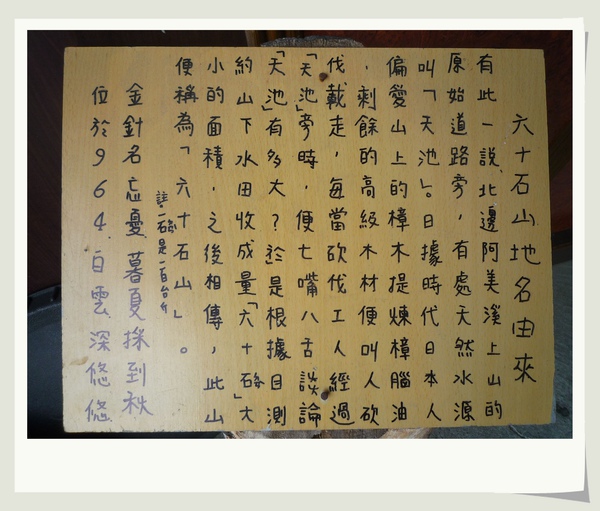 六十石山地名由來
有此一說、北邊阿美溪上山的
原始道路旁，有處天然水源
叫「天池」。日據時代日本人
偏愛山上的樟木提煉樟腦油
，剩餘的高級木材便叫人砍
伐載走，每當砍伐工人經過
「天池」旁時，便七嘴八舌談論
「天池」有多大？於是根據目測
約山下水田收成量「六十碦」大
小的面積，之後相傳，此山
便稱為「六十石山」。
註：一碦是一百台斤
金針名忘憂、暮夏採到秋
位於964、白雲深悠悠